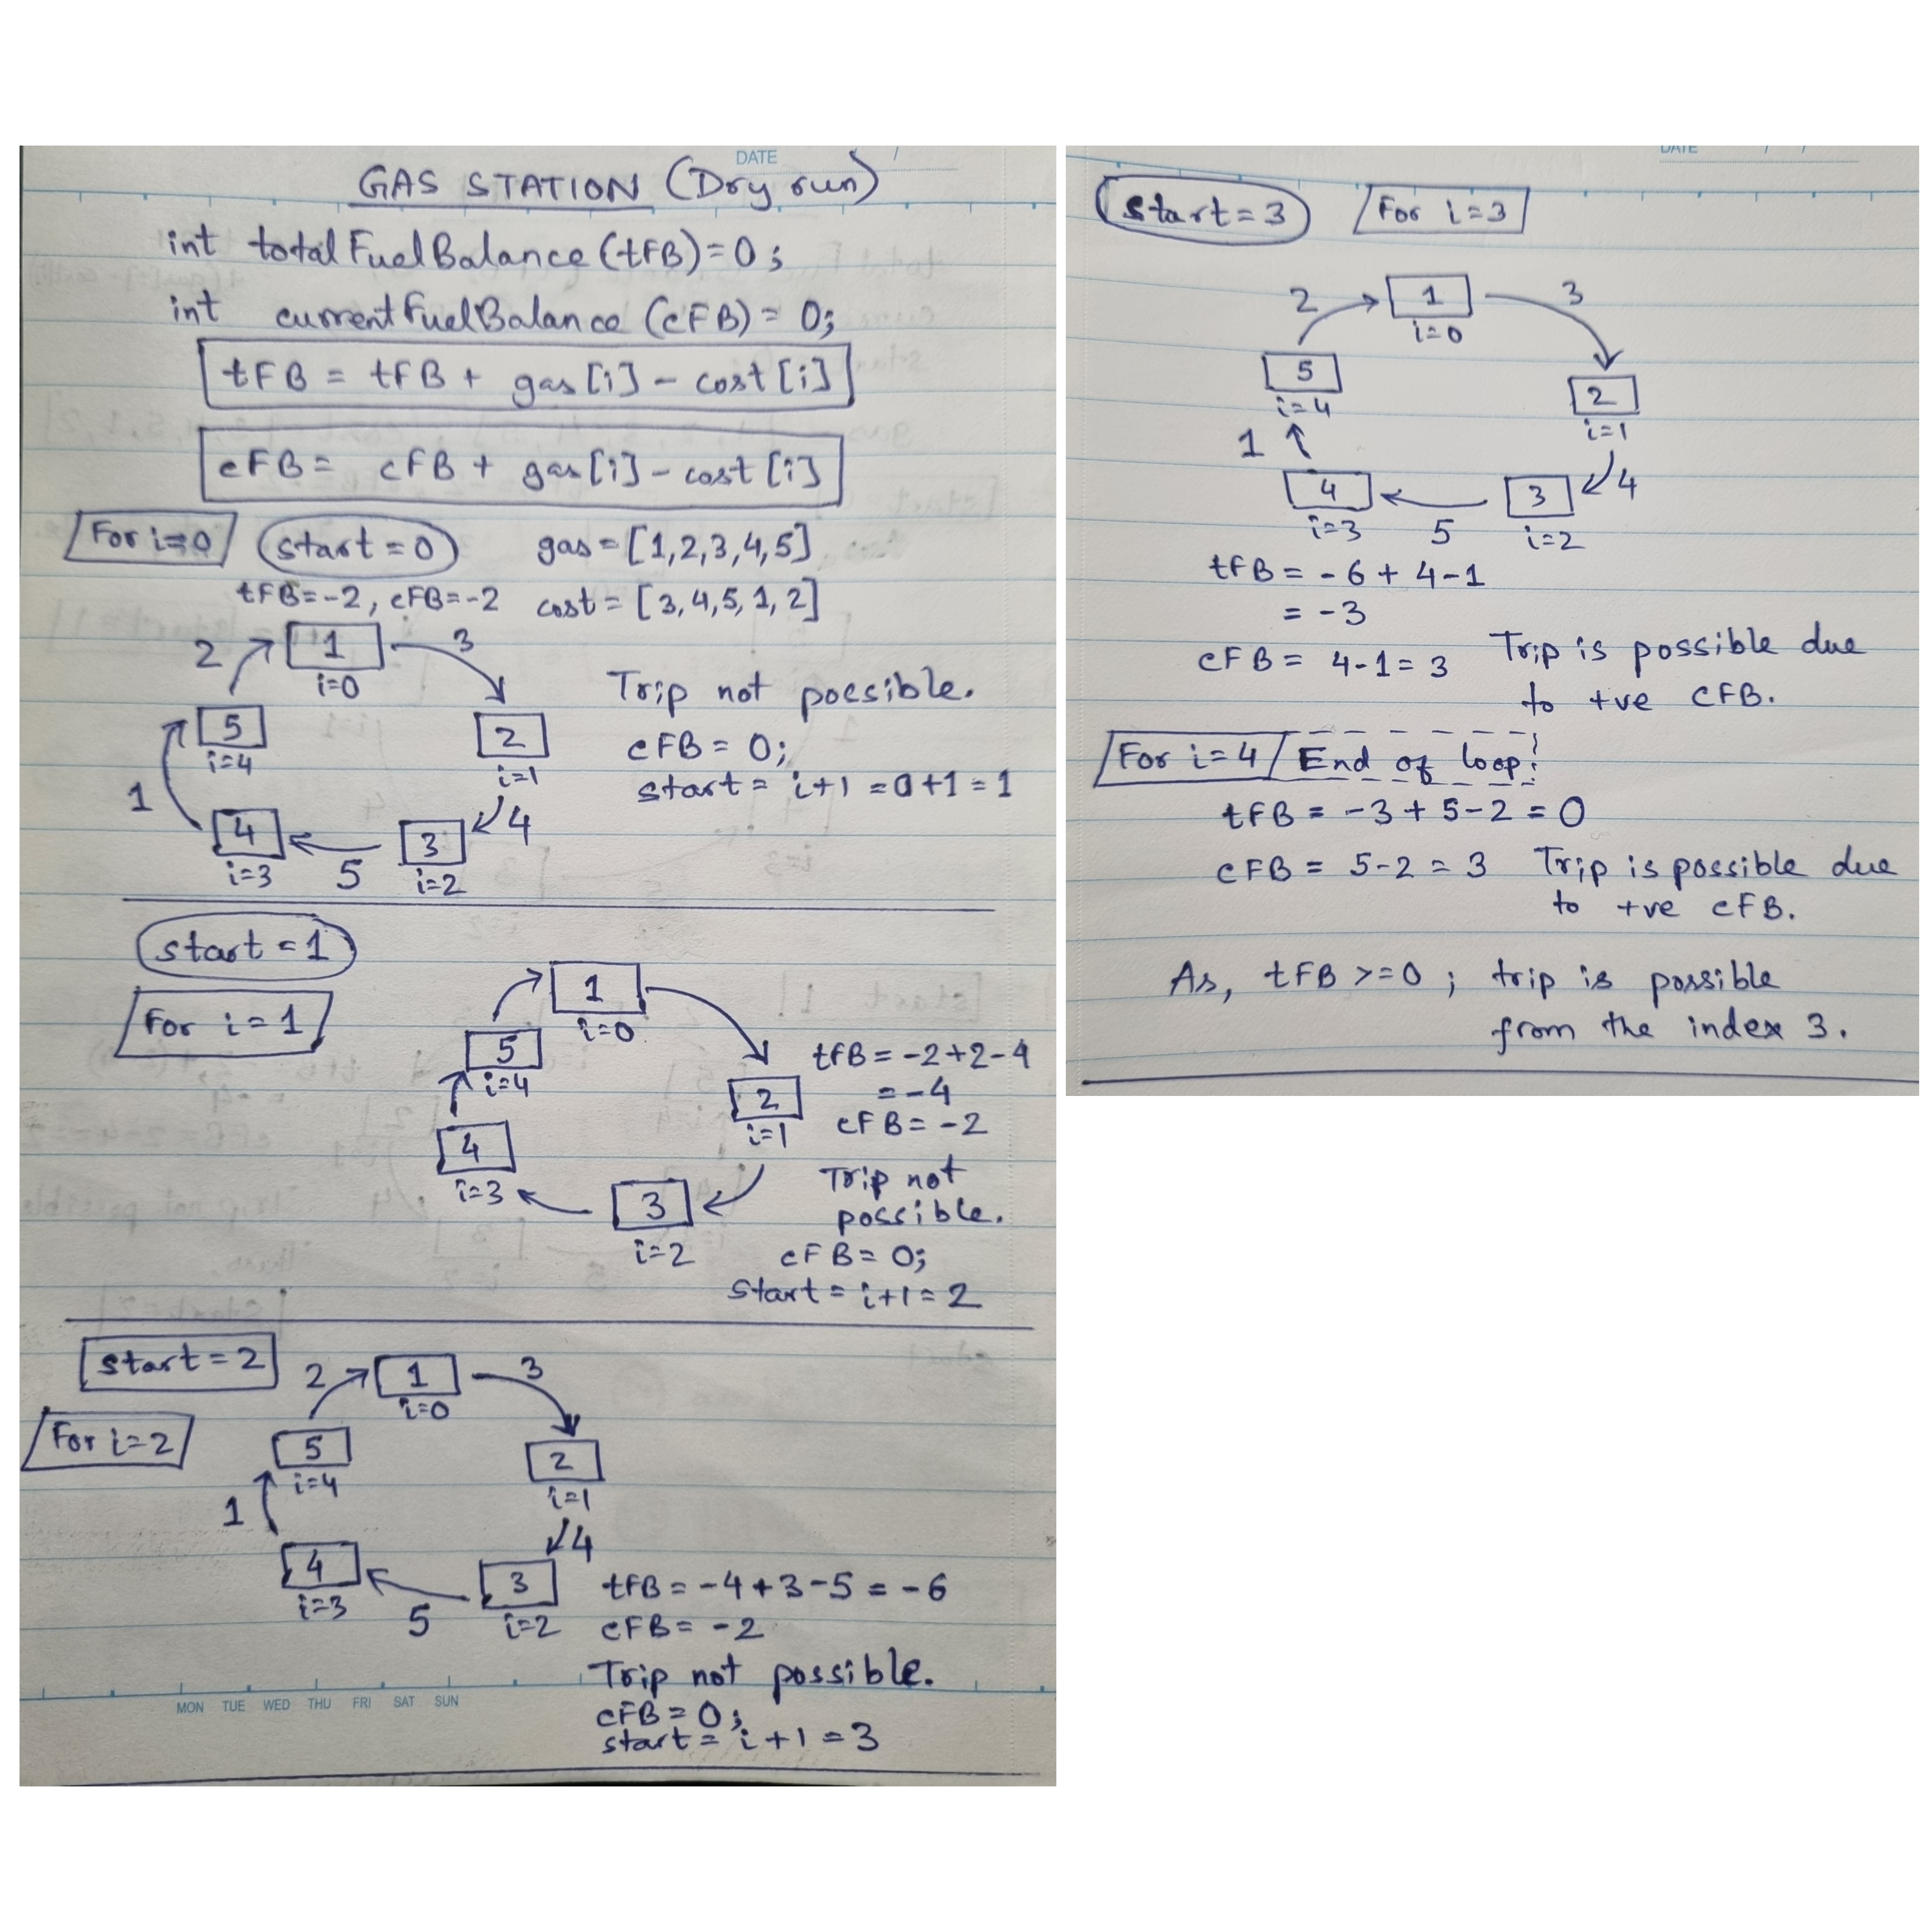 DATE /
GAS STATION (Dry run)
int totalFuelBalance (tFB)=0;
int currentFuelBalance (cFB) = 0;
tFB = tFB + gas[i] - cost[i]
cFB = cFB + gas[i] - cost[i]
For i=0 start=0 gas=[1,2,3,4,5]
tFB=-2, cFB=-2 cost=[3,4,5,1,2]
2 1 3
i=0
Trip not possible.
5 2
i=4 i=1
cFB = 0;
start = i+1 = 0+1 = 1
1 4 3 4
i=3 5 i=2
start = 1
For i=1
1
i=0
5
i=4
2
i=1
tFB = -2+2-4
= -4
cFB = -2
4
i=3
3
i=2
Trip not
possible.
cFB = 0;
Start = i+1 = 2
start=2
2 1 3
i=0
For i=2
5 2
i=4 i=1
1 4
4 3
i=3 5 i=2
tFB = -4+3-5 = -6
cFB = -2
Trip not possible.
cFB = 0;
start = i+1 = 3
MON TUE WED THU FRI SAT SUN
DATE / /
start=3 For i=3
2 1 3
i=0
5 2
i=4 i=1
1 4 3 4
i=3 5 i=2
tFB = -6+4-1
= -3
cFB = 4-1 = 3
Trip is possible due
to +ve CFB.
For i=4 End of loop
tFB = -3+5-2 = 0
cFB = 5-2 = 3 Trip is possible due
to +ve cFB.
As, tFB >=0; trip is possible
from the index 3.